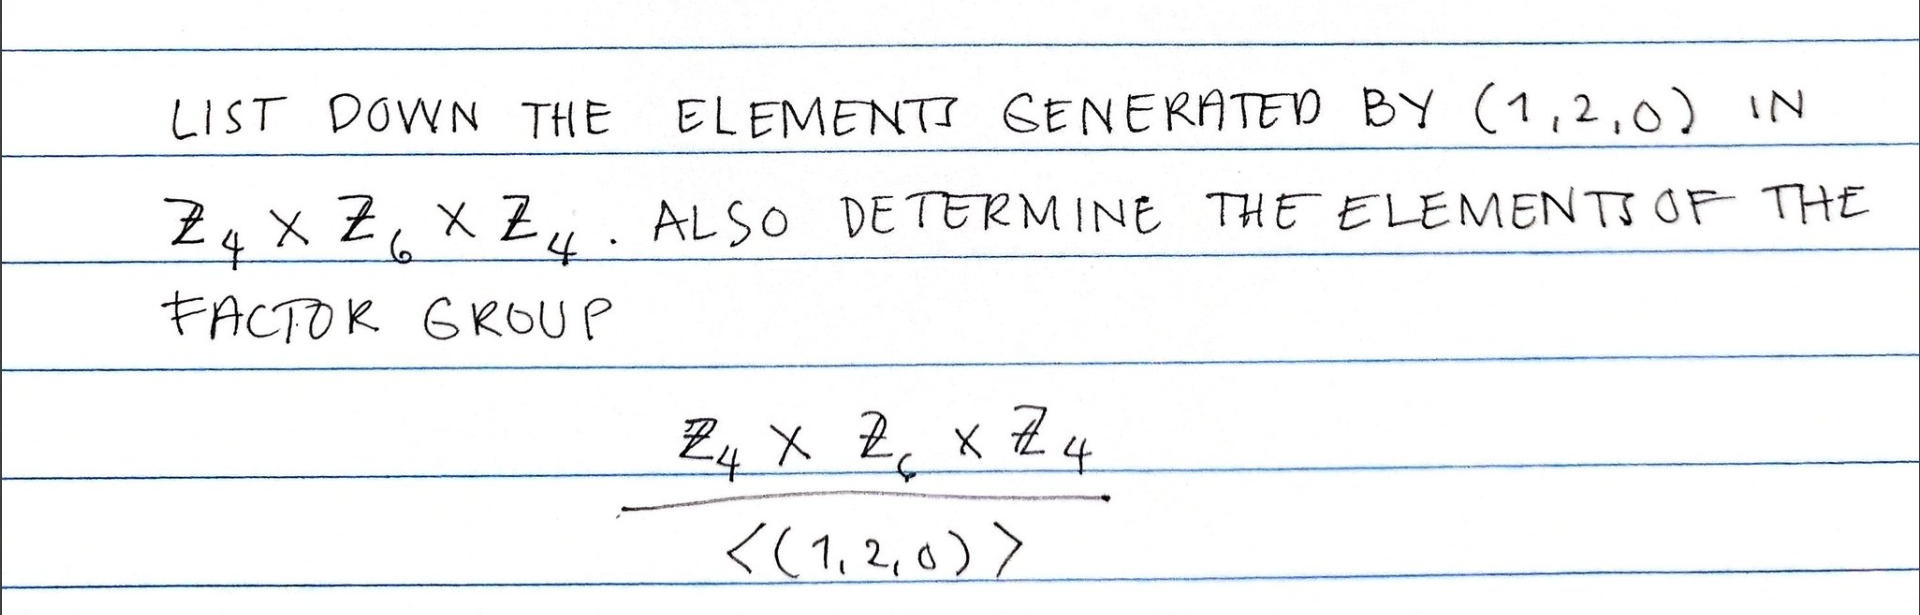 LIST DOWN THE ELEMENTS GENERATED BY (1,2,0) IN
Z₄ × Z₆ × Z₄. ALSO DETERMINE THE ELEMENTS OF THE
FACTOR GROUP
Z₄ × Z₆ × Z₄
<(1,2,0)>